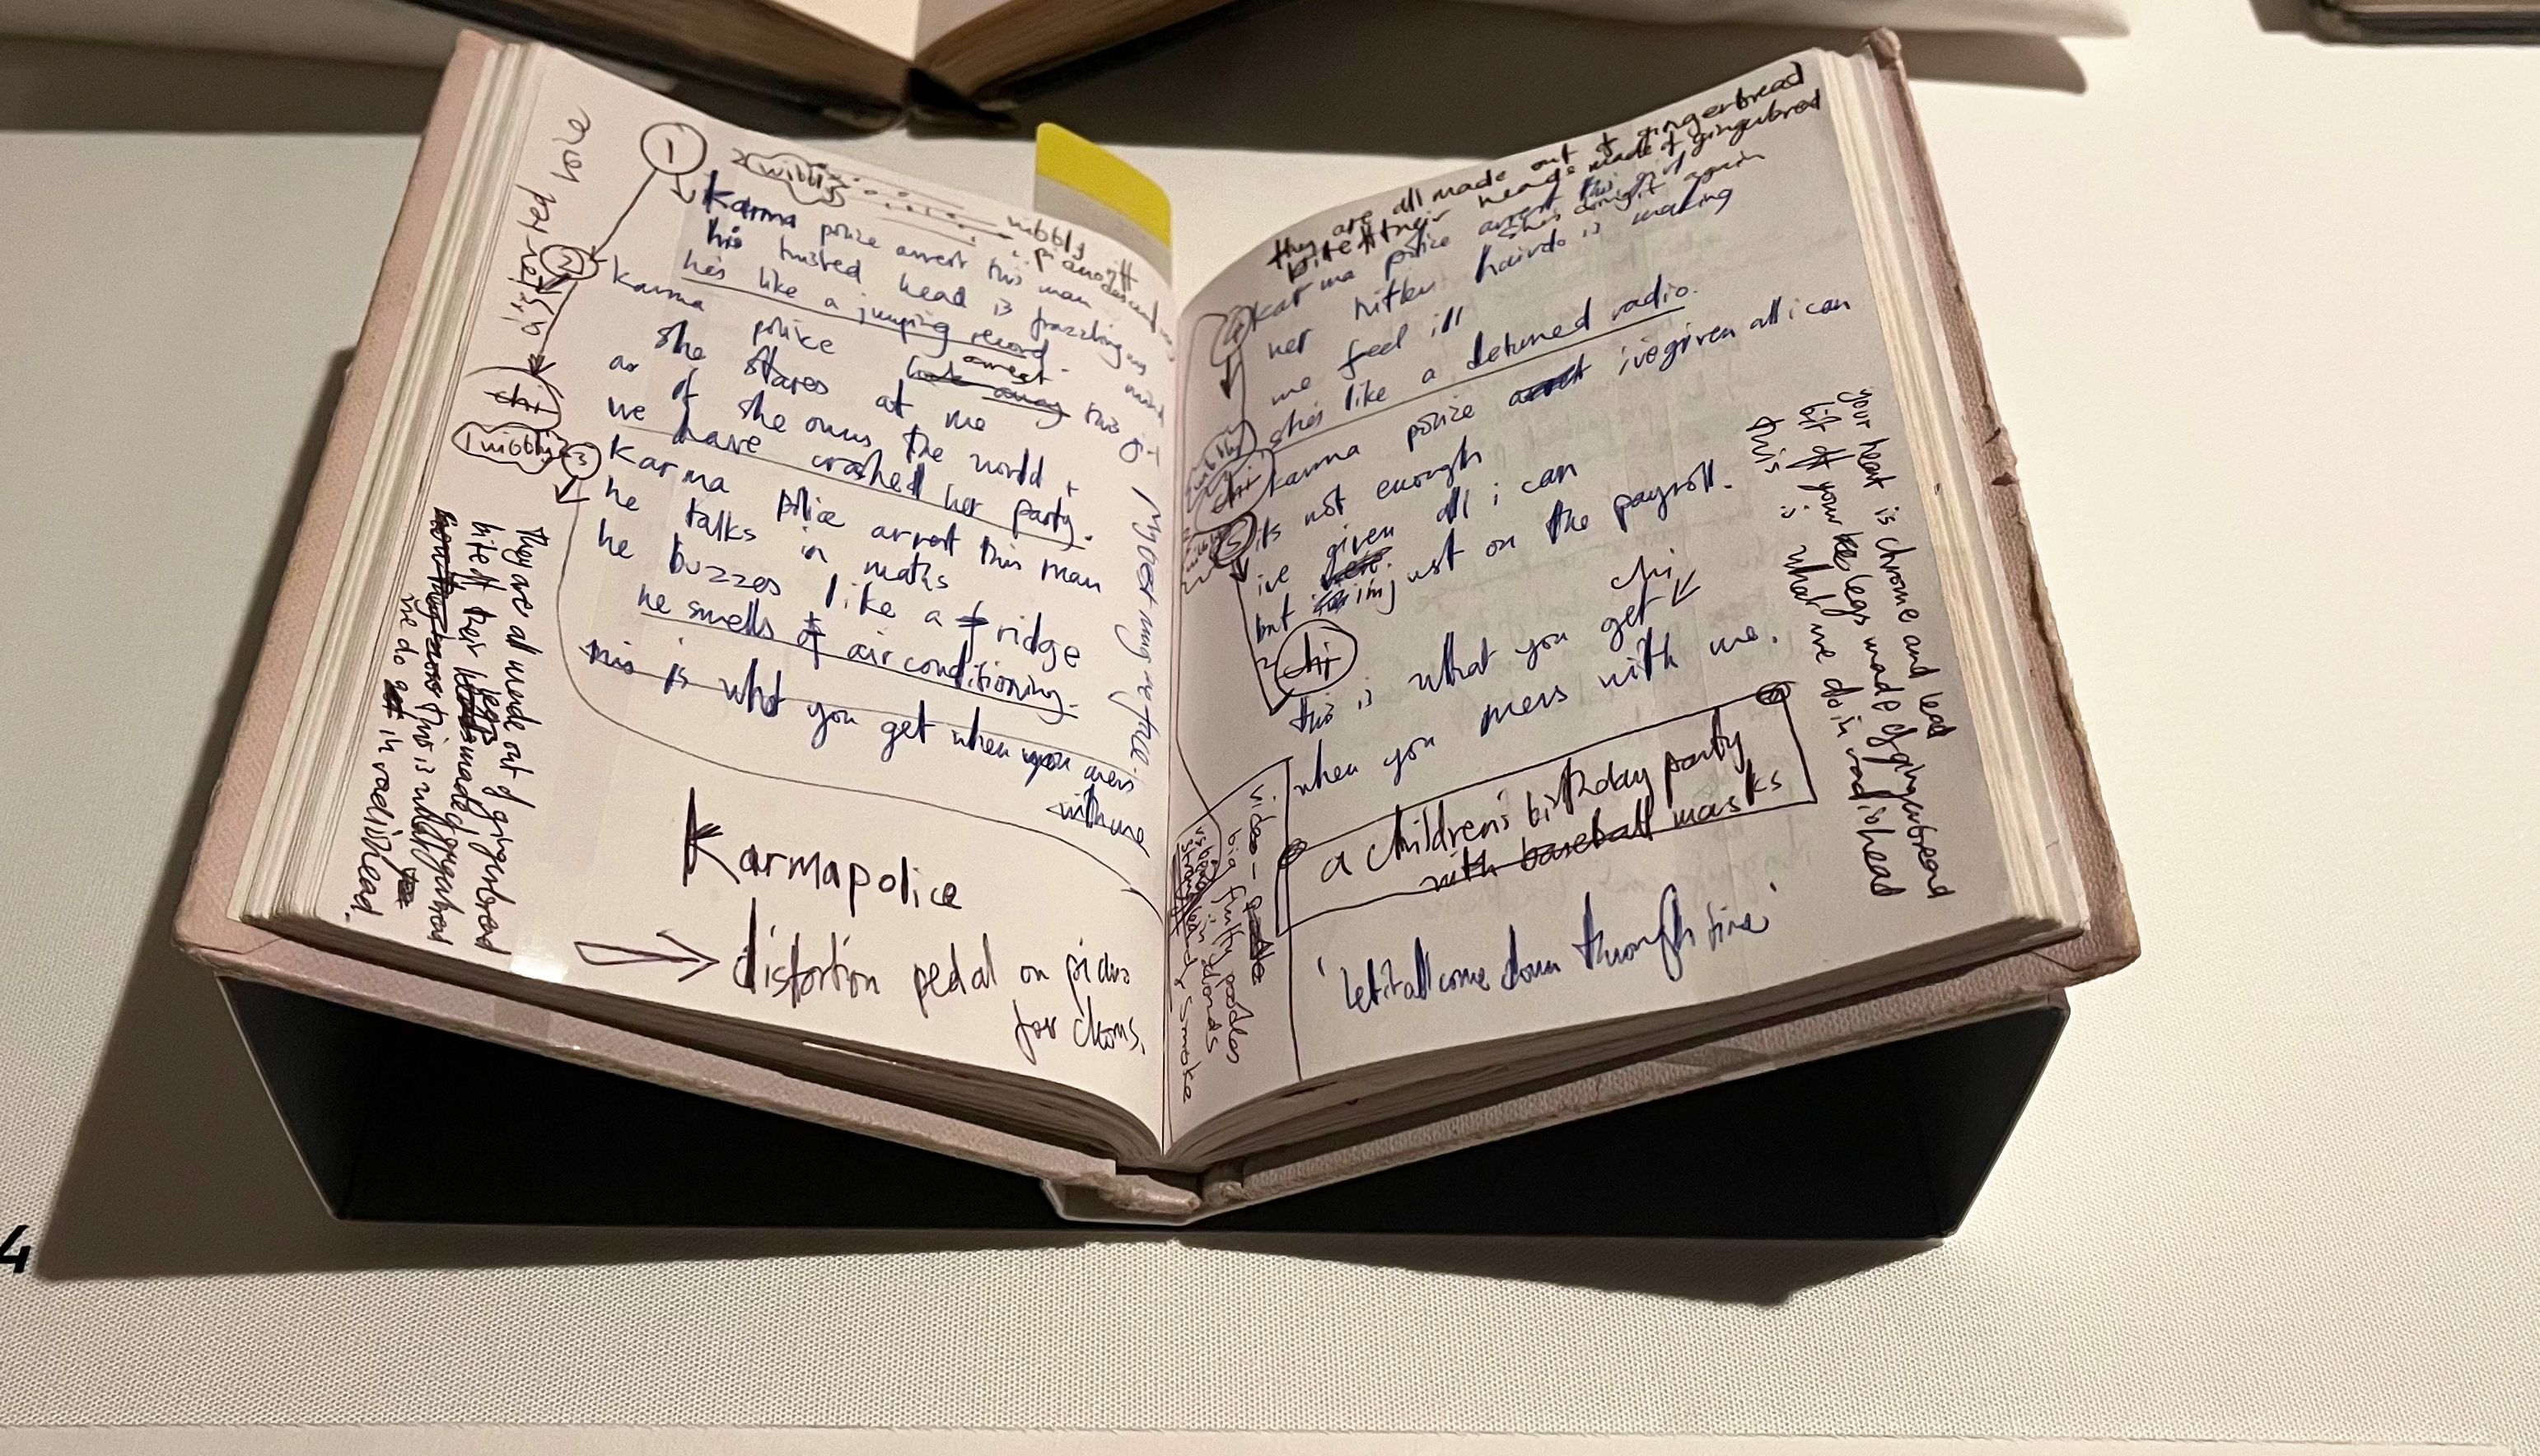 1
2 wibblys
wibbly
piano riff
descending
Karma police arrest this man
his twisted head is frazzling my mind
he's like a jumping record.
2
karma police arrest this girl
she stares at me
as if she owns the world +
we have crashed her party.
3
Karma police arrest this man
he talks in maths
he buzzes like a fridge
he smells of air conditioning.
this is what you get when you mess
with me
Karmapolice
distortion pedal on piano
for chorus.
distorted voice
chr
1 wibbly
They are all made out of gingerbread
bite off their legs made of gingerbread
this is what
we do in radiohead.
they are all made out of gingerbread
bite off their heads made of gingerbread
4
Karma police arrest this girl
shes doing it again
her hitler hairdo is making
me feel ill
shes like a detuned radio.
chr
karma police ive given all i can
its not enough
5
ive given all i can
but im just on the payroll.
chr
2 chr
this is what you get
when you mess with me.
a children's birthday party
with baseball masks
'let it all come down through time'
video -
big fluffy poodles
smoke
your heart is chrome and lead
bit off your legs made of gingerbread
this is what we do in radiohead
4